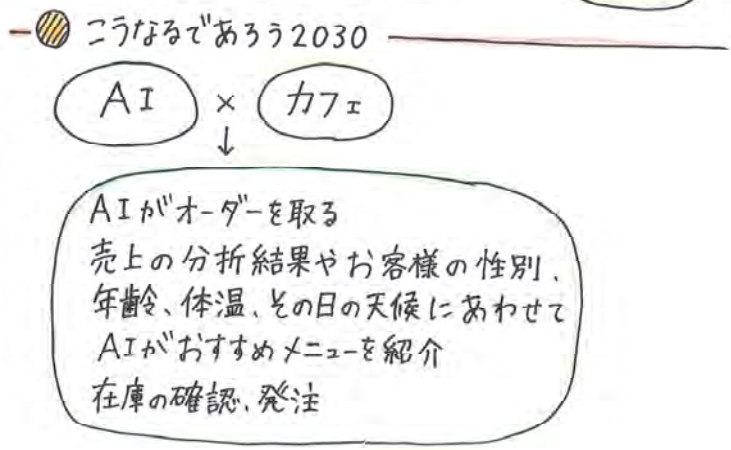 こうなるであろう2030
AI × カフェ
↓
AIがオーダーを取る
売上の分折結果やお客様の性別、
年齢、体温、その日の天候にあわせて
AIがおすすめメニューを紹介
在庫の確認、発注